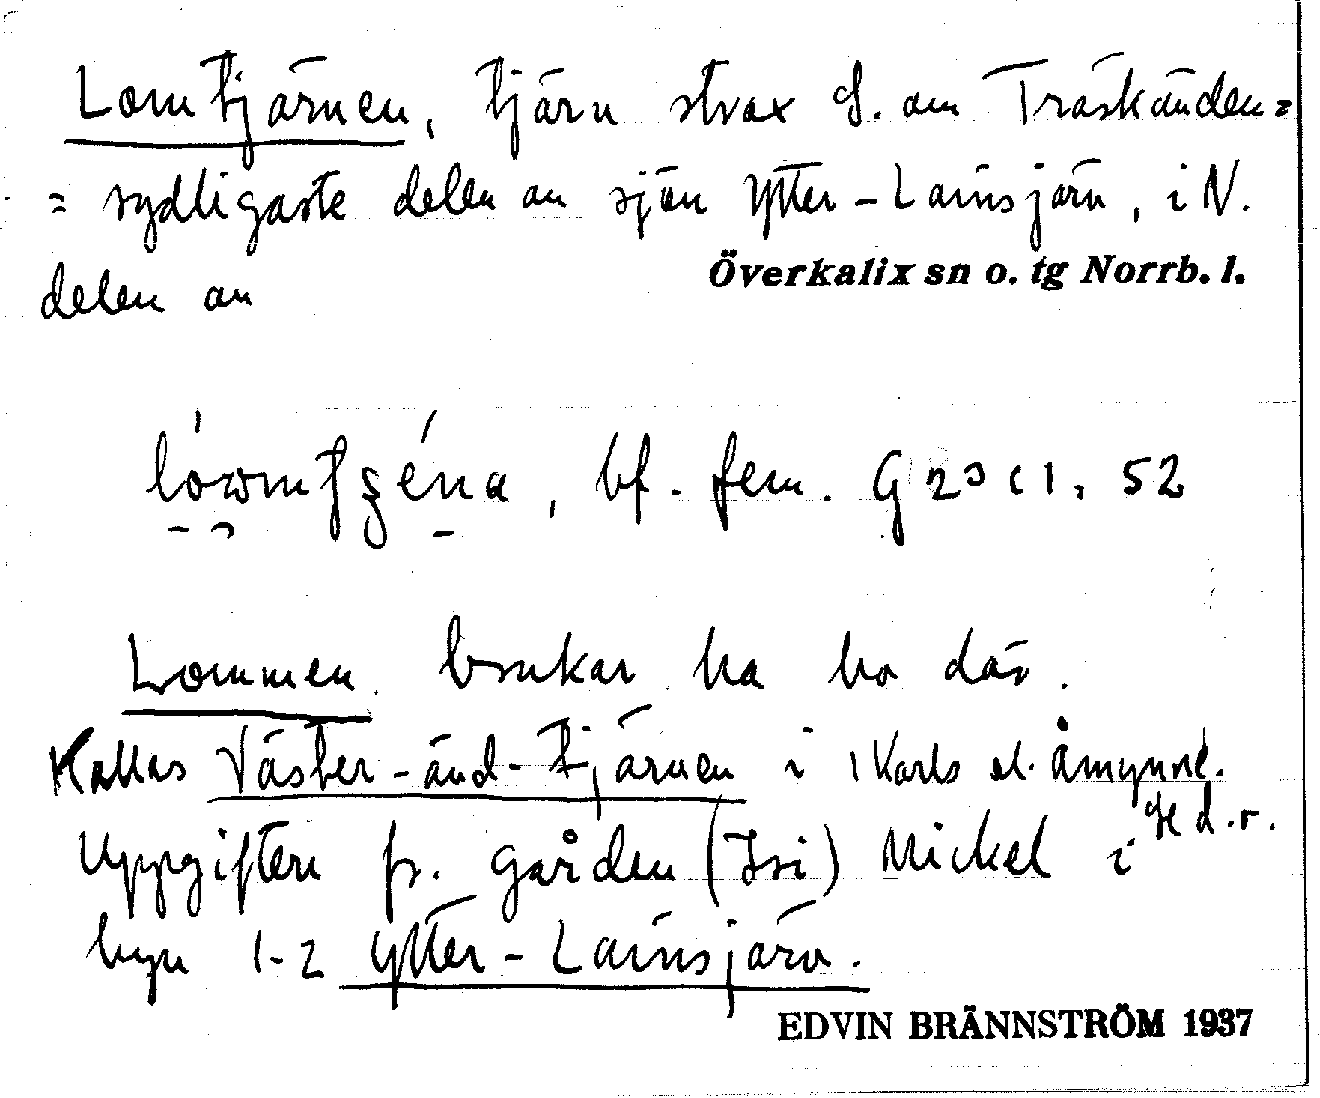 Lomtjärnen, tjärn strax S. om Träskänden=
= sydligaste delen av sjön Ytter-Lainsjärv, i N.
delen av Överkalix sn o. tg Norrb. l.
bf. fem. 52
Lommen brukar ha bo där.
Kallas Väster-änd-tjärnen i 1 Karls el. Åmynne.
se d.o.
Uppgiften fr. gården (Isi) Mickel i
byn 1-2 Ytter-Lainsjärv.
EDVIN BRÄNNSTRÖM 1937